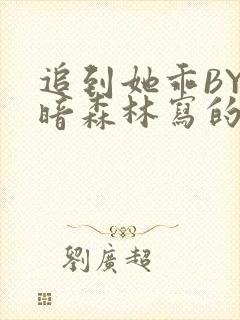 追到她乖BY
暗森林寫的
劉廣超